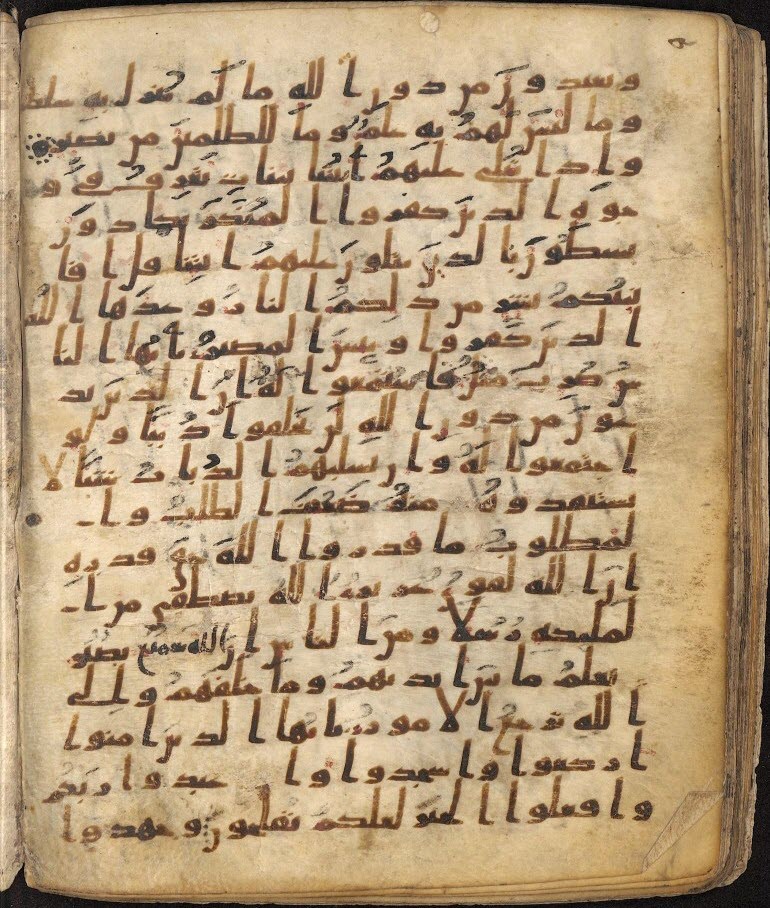 ويعبدون من دون الله ما لم ينزل به سلطنا
وما ليس لهم به علم وما للظلمين من نصير
واذا تتلى عليهم ايتنا بينت تعرف في و
جوه الذين كفروا المنكر يكادون
يسطون بالذين يتلون عليهم ايتنا قل افا
نبئكم بشر من ذلكم النار وعدها الله
الذين كفروا وبئس المصير يايها النا
س ضرب مثل فاستمعوا له ان الذين تد
عون من دون الله لن يخلقوا ذبابا ولو
اجتمعوا له وان يسلبهم الذباب شيا لا
يستنقذوه منه ضعف الطلب وا
لمطلوب ما قدروا الله حق قدره
ان الله لقوي عزيز الله يصطفي من ا
لملئكة رسلا ومن الناس ان الله سميع بصير
يعلم ما بين ايديهم وما خلفهم والى
الله ترجع الامور يايها الذين امنوا
اركعوا واسجدوا واعبدوا ربكم
وافعلوا الخير لعلكم تفلحون وجهدوا